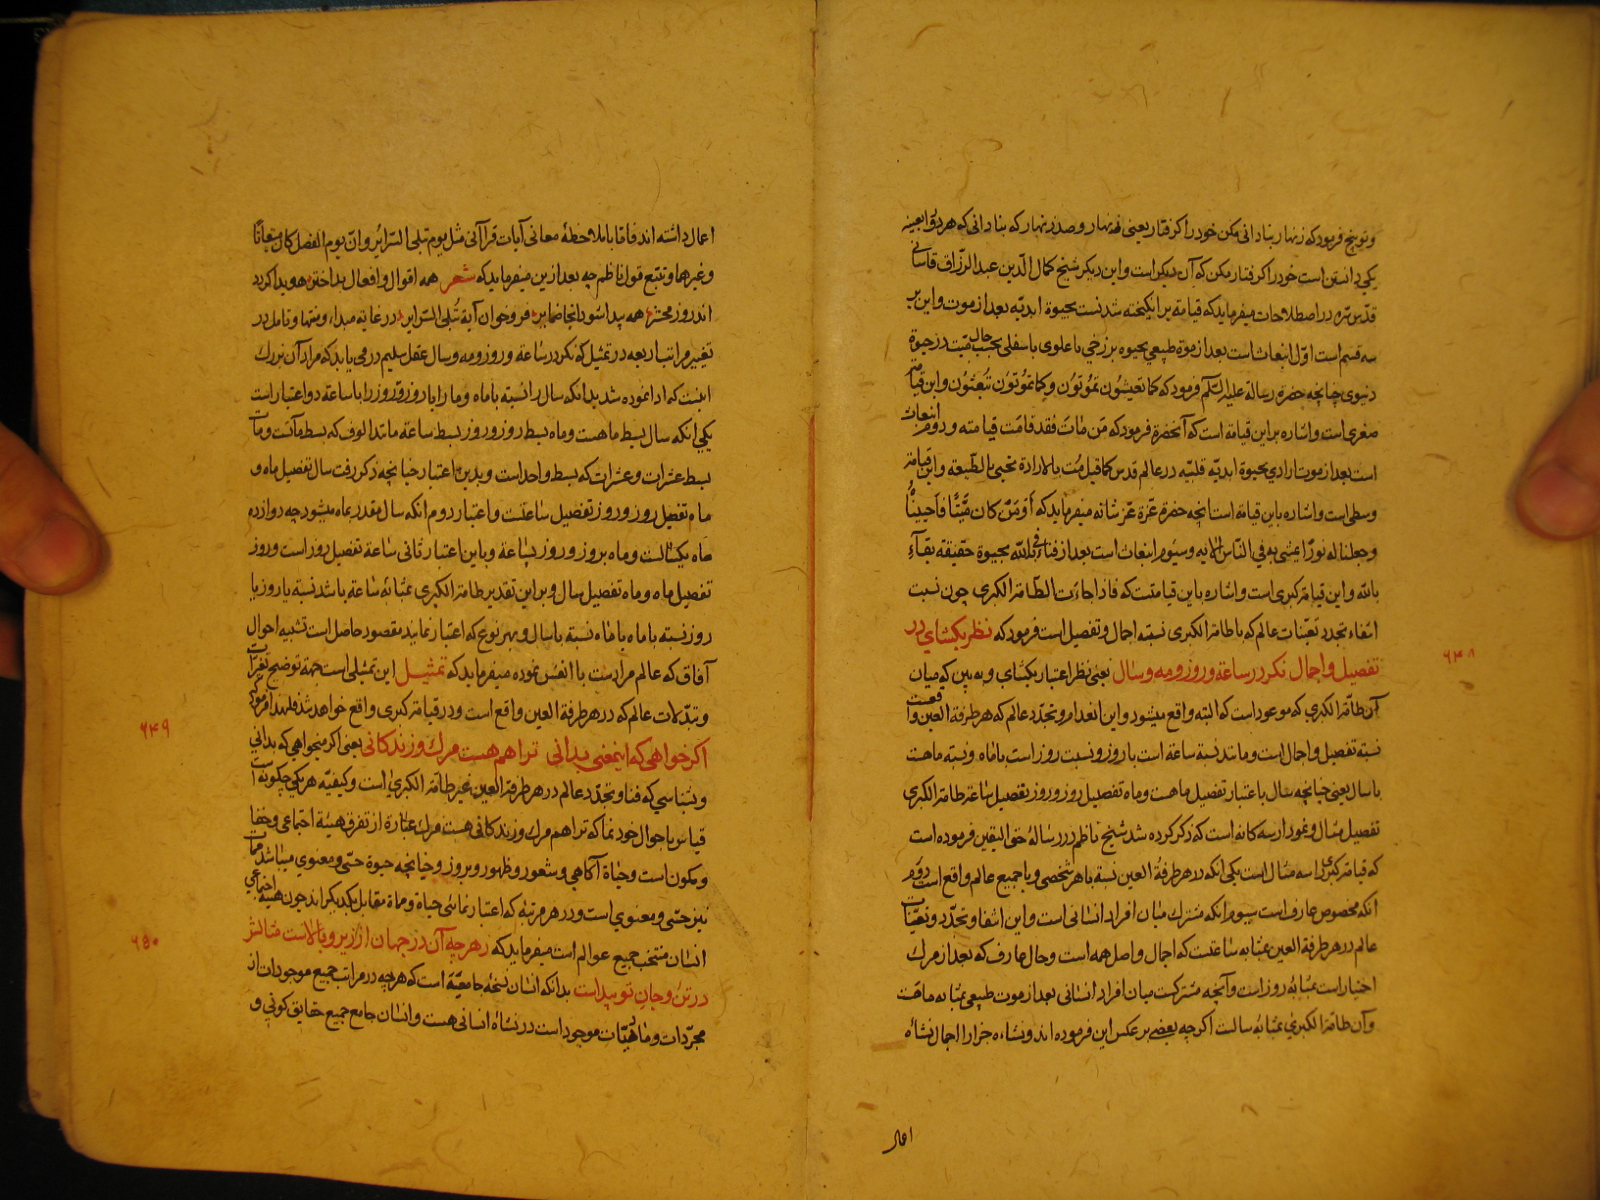 وتوبیخ فرمود که زنهار بنادانی مکن خود را گرفتار یعنی نه نهار و صد زنهار که بنادانی که هر دو بعینه
یکی دانستن است خود را گرفتار مکن که آن دیگر است و این دیگر شیخ کمال الدین عبد الرزاق قاسانی
قدس سره در اصطلاحات میفرماید که قیامة برانگیخته شدنست بحیوة ابدیه بعد از موت و این بر
سه قسم است اول انبعاث است بعد از موة طبیعی بحیوه برزخی یا علوی یا سفلی بحسب حال میت در حیوة
دنیوی چنانچه حضرة رسالة علیه السلم فرمود که کما تعیشون تموتون و کما تموتون تبعثون و این قیامة
صغری است و اشاره بر این قیامة است که آنحضرة فرمود که من مات فقد قامت قیامته و دوم انبعاث
است بعد از موت ارادی بحیوة ابدیه قلبیه در عالم قدس کما قیل مت بالارادة تحیی بالطبیعة و این قیامة
وسطی است و اشاره باین قیامة است انچه حضرة عزة عز شانه میفرماید که أومن کان میتا فاحییناه
وجعلنا له نورا یمشی به فی الناس الایه و سیوم انبعاث است بعد از فناء فی الله بحیوة حقیقة بقاء
بالله و این قیامة کبری است و اشاره باین قیامتست که فاذا جاءت الطامة الکبری چون نسبت
انتفاء تجدد تعینات عالم که با طامة الکبری نسبة اجمال و تفصیل است فرمود که نظر بکشای در
تفصیل و اجمال نکر در ساعة و روز و مه و سال یعنی نظر اعتبار بکشای و به بین که میان
۶۴۸
آن طامة الکبری که موعود است که البته واقع میشود و این انعدام و تجدد عالم که هر طرفة العین واقعست
نسبة تفصیل و اجمال است و مانند نسبة ساعة است با روز و نسبت روز است با ماه و نسبة ماهست
با سال یعنی چنانچه سال باعتبار تفصیل ماهست و ماه تفصیل روز و روز تفصیل ساعة طامة الکبری
تفصیل مثال و نمودار سه کانه است که ذکر کرده شد شیخ ناظم در رسالهٔ حق الیقین فرموده است
که قیامة کبری را سه مثال است یکی انکه در هر طرفة العین نسبة با هر شخصی و با جمیع عالم واقع است دوم
انکه مخصوص عارف است سیوم انکه مشترک میان افراد انسانی است و این انتفا و تجدد و تعینات
عالم در هر طرفة العین بمثابه ساعتست که اجمال و اصل همه است و حال عارف که بعد از مرک
اختیار است بمثابه روز است و آنچه مشترکست میان افراد انسانی بعد از موت طبیعی بمثابه ماهست
و آن طامة الکبری بمثابه سالست اگر چه بعضی بر عکس این فرموده اند و نشاءه جزا را اجمال نشاه
اعمال
اعمال داشته اند فاتا باملاحظهٔ معانی آیات قرآنی مثل یوم تبلی السرائر و ان یوم الفصل کان میقاتا
و غیرهما و تتبع قول ناظم چه بعد ازین میفرماید که شعر همه اقوال و افعال مدخر هویدا کردد
اندر روز محشر همه پیدا شود انجا ضمایر فرو خوان آیة تبلی السرایر در غایة مبداء و منتها و تامل در
تغییر مراتب اربعه در تمثیل که نکر در ساعة و روز و مه و سال عقل سلیم در می یابد که مراد آن بزرك
اینست که ادا نموده شد بدانکه سال را نسبة با ماه و ماه را با روز و روز را با ساعة دو اعتبار است
یکی انکه سال بسط ماهست و ماه بسط روز و روز بسط ساعة مانند الوف که بسط مآتست و مآت
بسط عشرات و عشرات که بسط واحد است و بدین اعتبار چنانچه ذکر رفت سال تفصیل ماه و
ماه تفصیل روز و روز تفصیل ساعتست و اعتبار دوم انکه سال مقدر بماه میشود چه دوازده
ماه یکسالست و ماه بروز و روز بساعة و باین اعتبار ثانی ساعة تفصیل روز است و روز
تفصیل ماه و ماه تفصیل سال و بر این تقدیر طامة الکبری بمثابه ساعة باشد نسبة با روز یا
روز نسبة با ماه یا ماه نسبة با سال و بهر نوع که اعتبار نمایند مقصود حاصل است تشبیه احوال
آفاق که عالم مراد ست با انفس نموده میفرماید که تمثیل این تمثیلی است جهة توضیح تغیرات
و تبدلات عالم که در هر طرفة العین واقع است و در قیامة کبری واقع خواهد شد فلهذا فرمود که
اکر خواهی که اینمعنی بدانی ترا هم هست مرك و زندکانی یعنی اکر میخواهی که بدانی
۶۴۹
و بشناسی که فنا و تجدد عالم در هر طرفة العین غیر طامة الکبری است و کیفیة هر یکی چکونه است
قیاس باحوال خود نما که ترا هم مرك و زندکانی هست مرك عبارة از تفرق هیئة اجتماعی و خفا
و کمون است و حیاة آکاهی و شعور و ظهور و بروز و چنانچه حیوة حسی و معنوی میباشد ممات
نیز حسی و معنوی است و در هر مرتبه که اعتبار نمائی حیاة و ماة مقابل یکدیکر اند چون هیئة اجتماعی
انسان منتخب جمیع عوالم است میفرماید که ز هر چه آن در جهان از زیر و بالاست مثالش
۶۵۰
در تن و جان تو پیداست بدانکه انسان نسخهٔ جامعیة است که هر چه در مراتب جمیع موجودات از
مجردات و ماهیات موجود است در نشاهٔ انسانی هست و انسان جامع جمیع حقایق کونی و